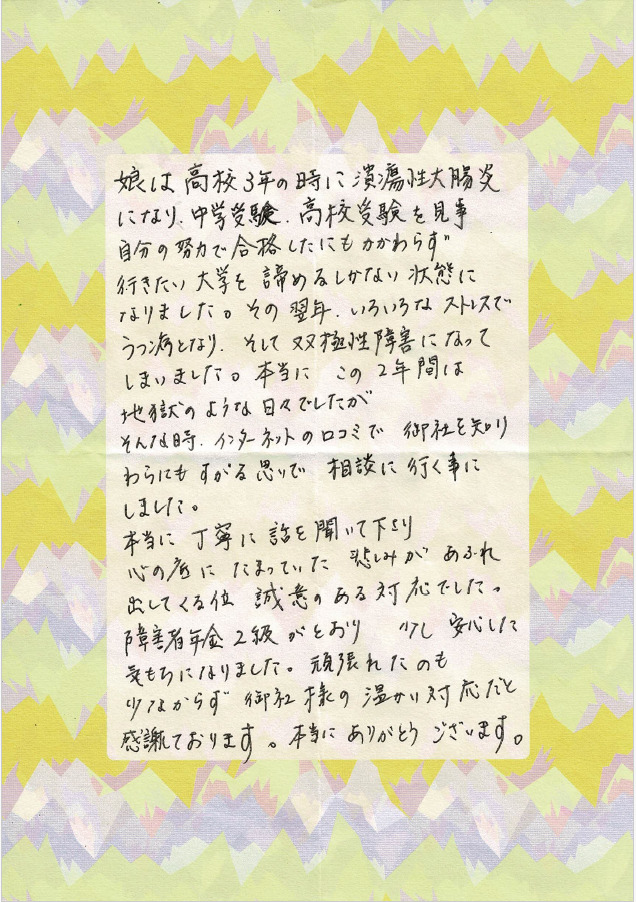 娘は高校3年の時に潰瘍性大腸炎
になり、中学受験、高校受験を見事
自分の努力で合格したにもかかわらず
行きたい大学を諦めるしかない状態に
なりました。その翌年、いろいろなストレスで
うつ病となり、そして双極性障害になって
しまいました。本当に この2年間は
地獄のような日々でしたが
そんな時、インターネットの口コミで 御社を知り
わらにもすがる思いで 相談に行く事に
しました。
本当に丁寧に話を聞いて下さり
心の底にたまっていた 悲しみが あふれ
出してくる位 誠意のある対応でした。
障害者年金2級がとおり 少し安心した
気もちになりました。頑張れたのも
少なからず 御社様の温かい対応だと
感謝しております。本当にありがとうございます。